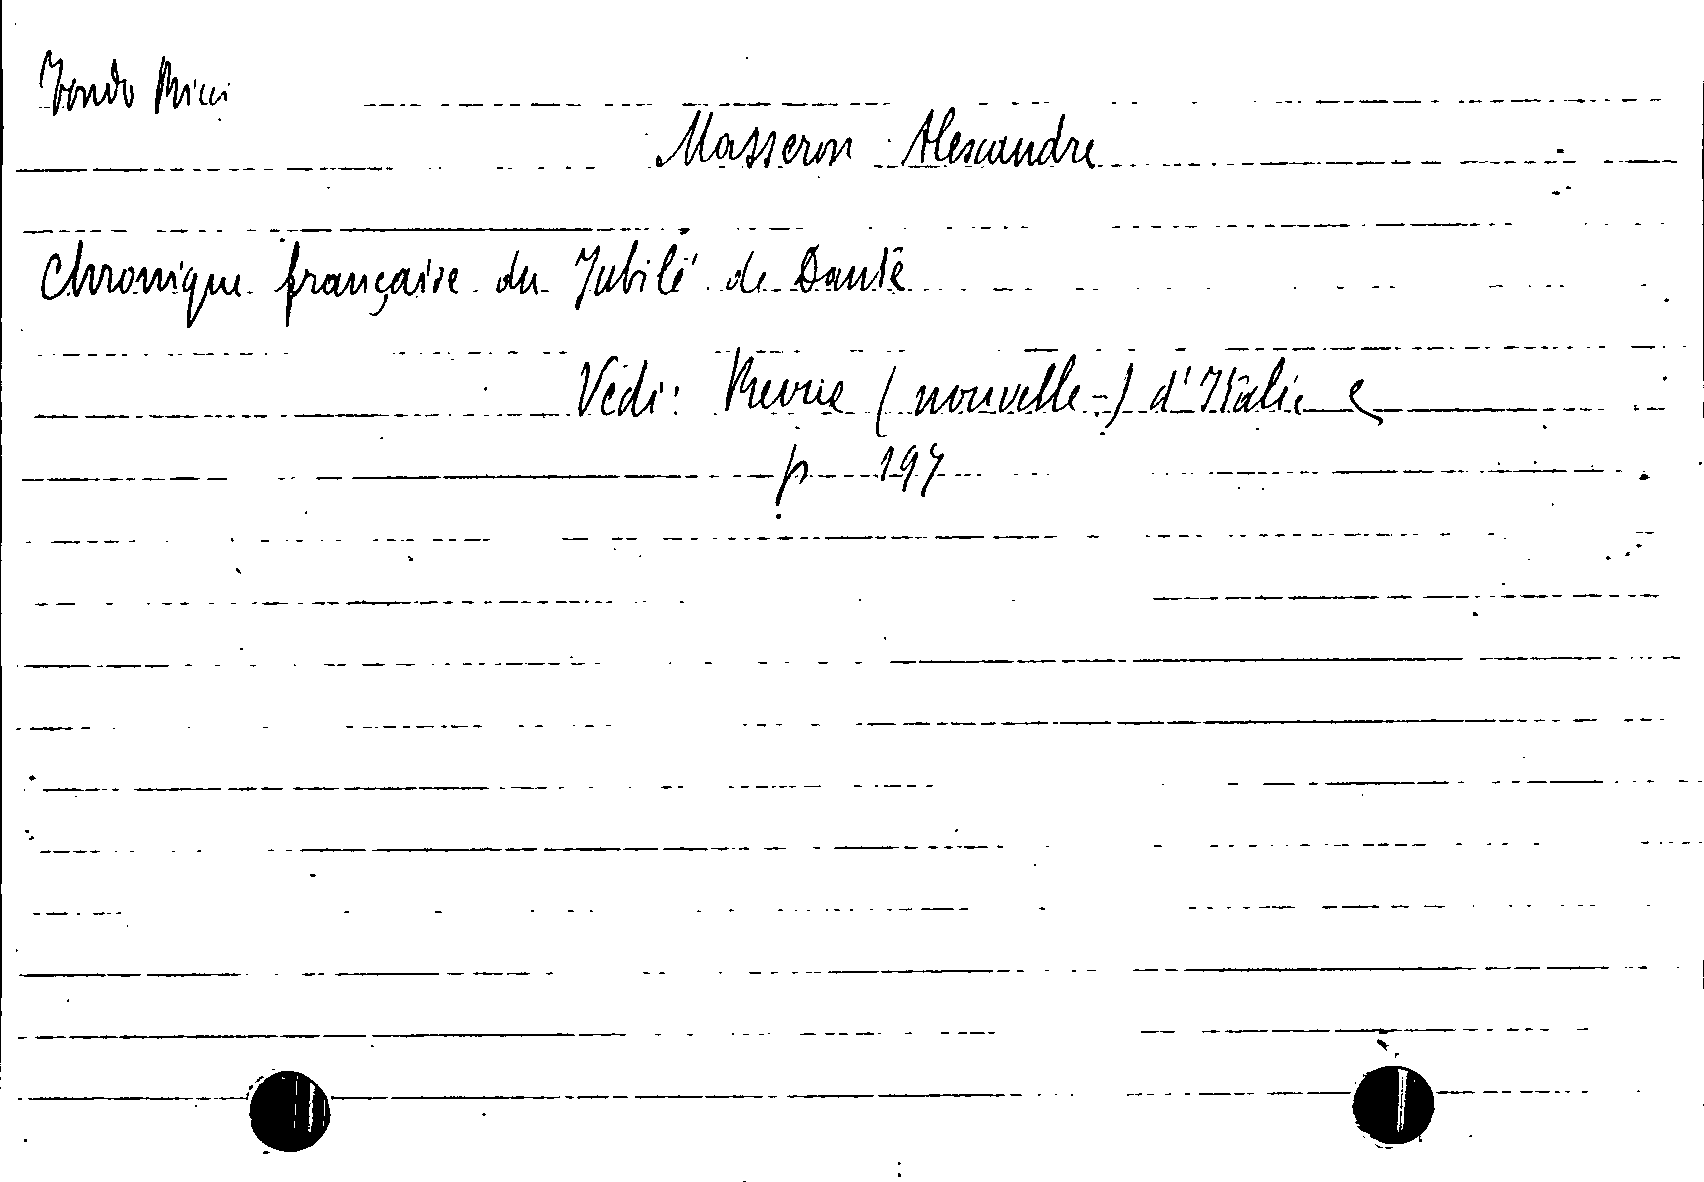 Fondo Ricci
Masseron Alexandre
Chronique française du Jubilé de Dante
Vedi: Revue (nouvelle-) d'Italie
p 197